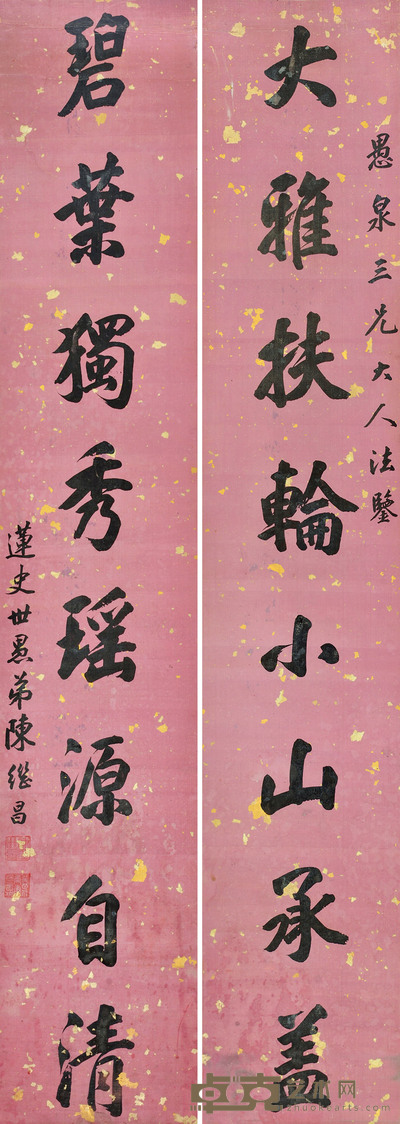 愚泉三兄大人法鑒
大雅扶輪小山承蓋
碧葉獨秀瑶源自清
蓮史世愚弟陳繼昌
卓克艺术网
zhuokearts.com